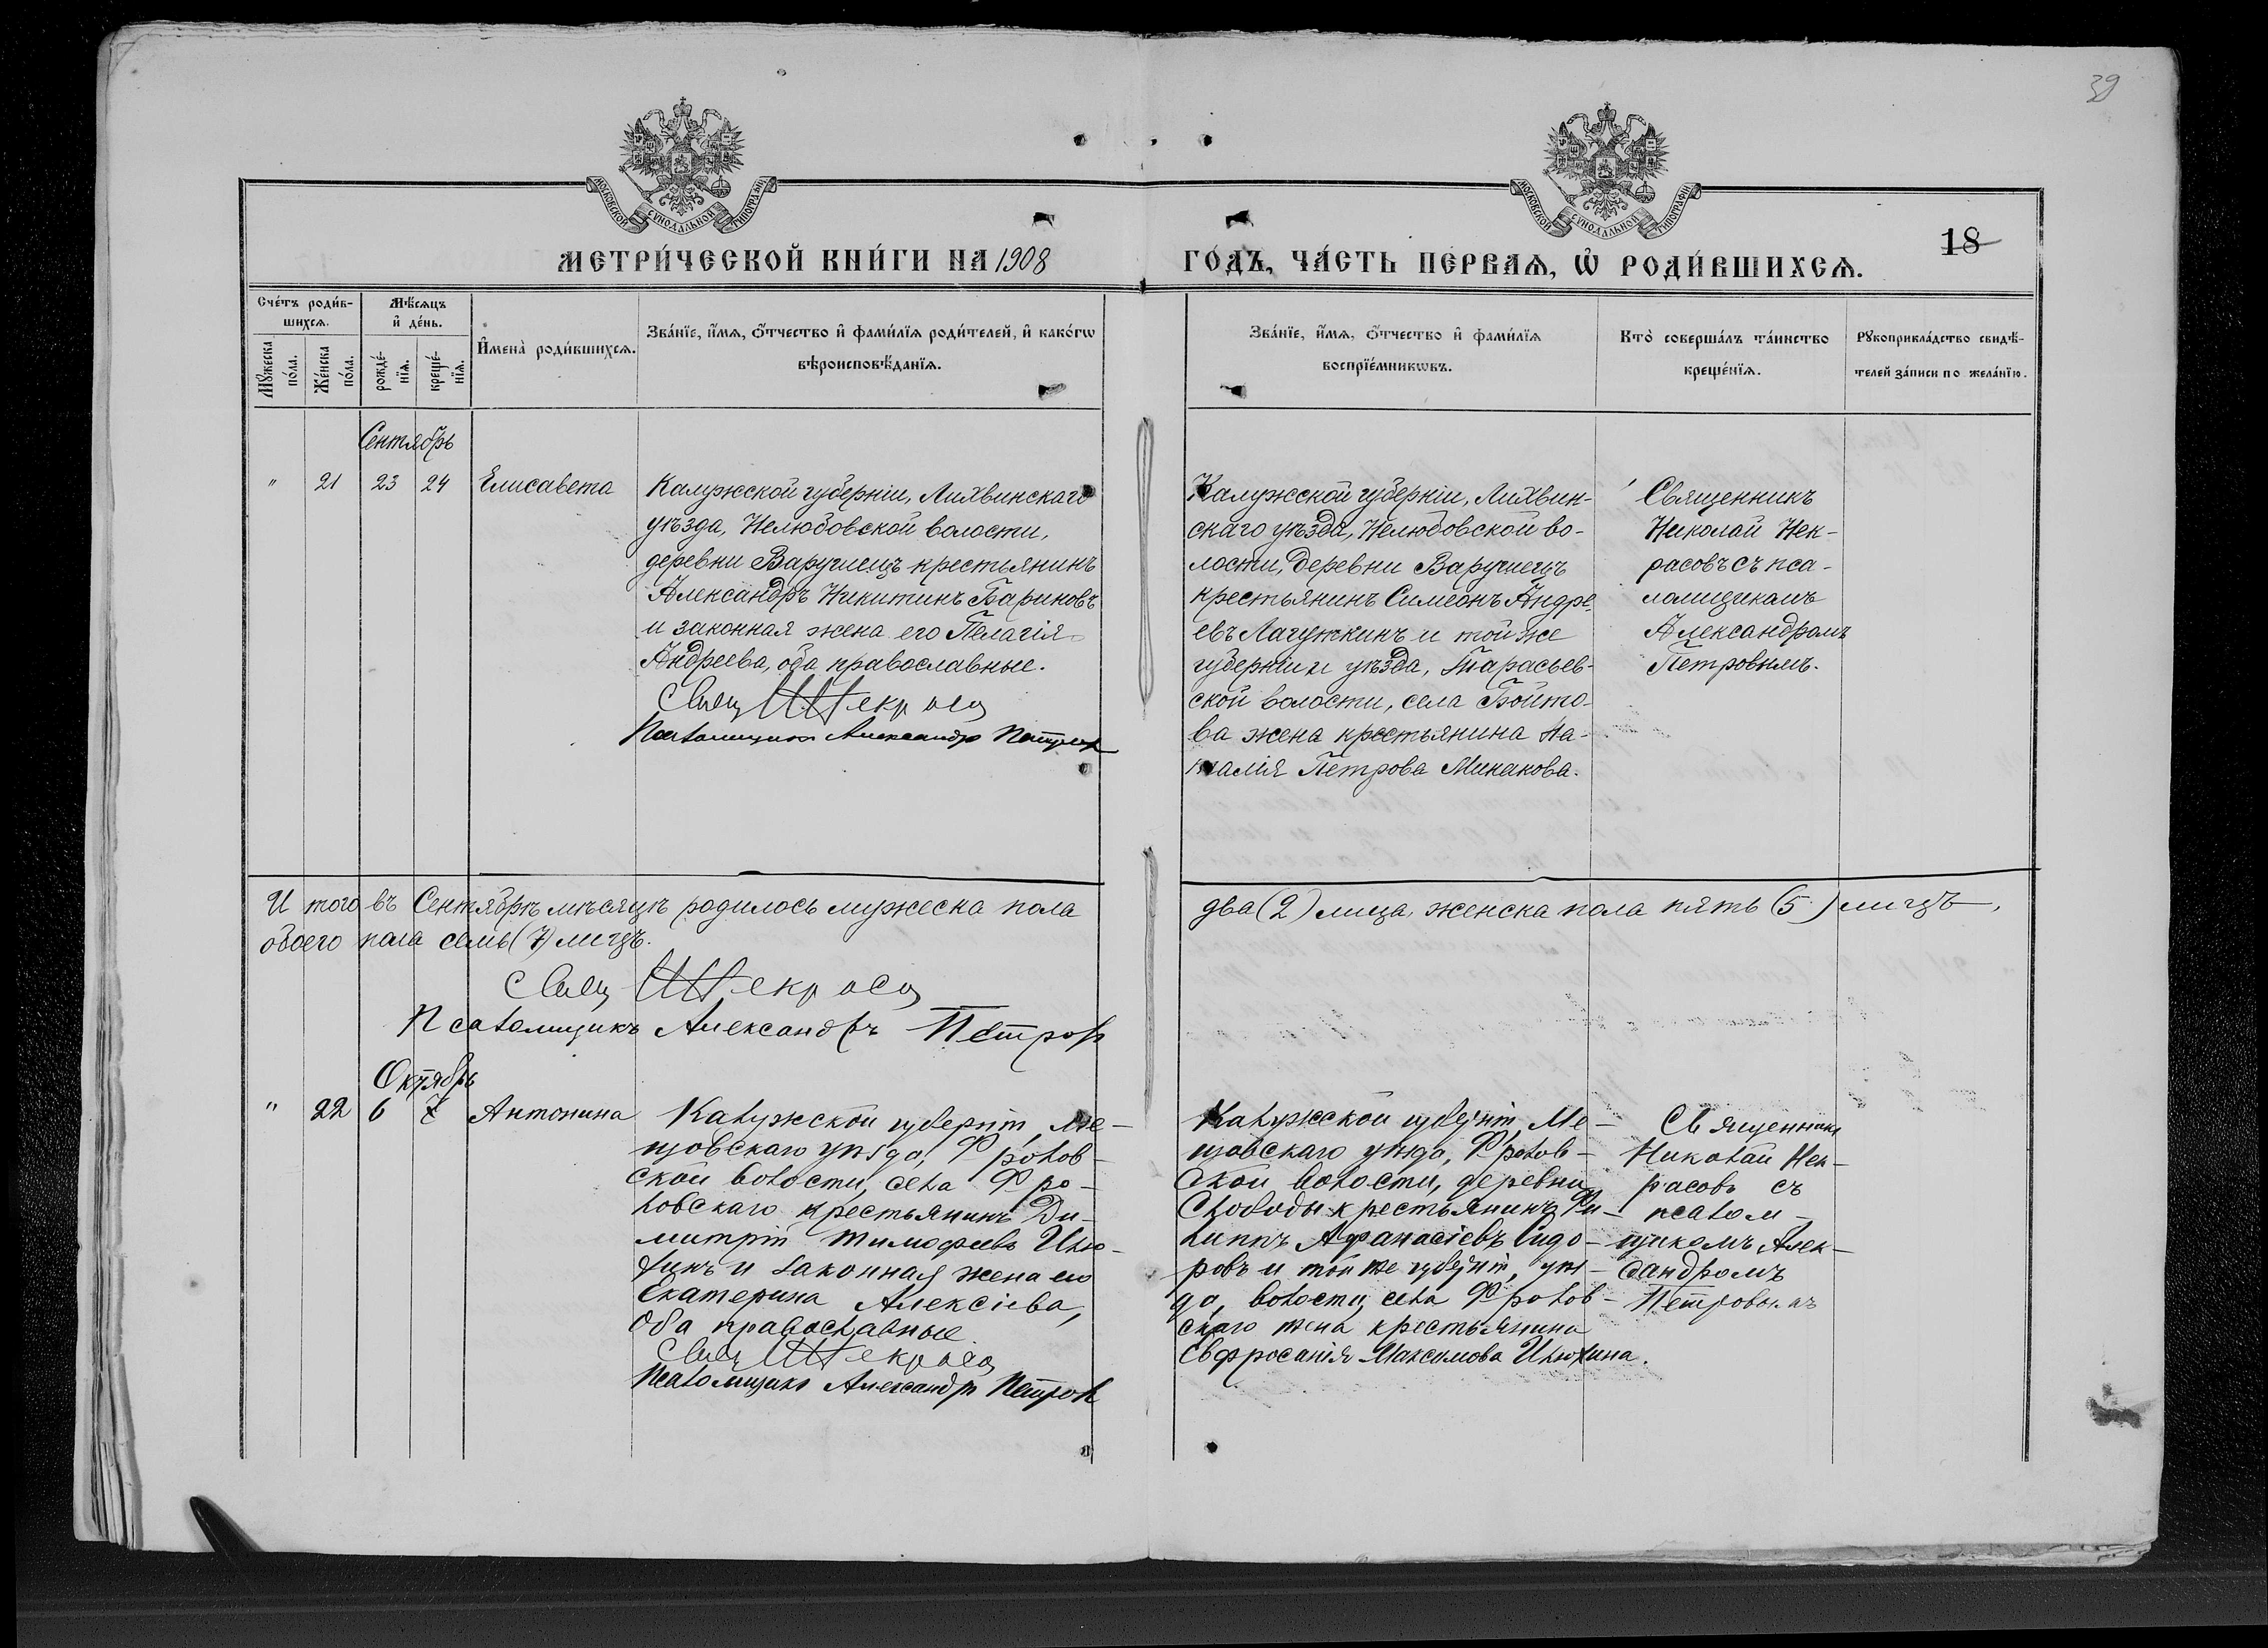 39
МОСКОВСКОЙ СѴНОДАЛЬНОЙ ТИПОГРАФІИ
МОСКОВСКОЙ СѴНОДАЛЬНОЙ ТИПОГРАФІИ
МЕТРИ́ЧЕСКОЙ КНИ́ГИ НА 1908
ГО́ДЪ, ЧА́СТЬ ПЕ́РВАѦ, Ѡ РОДИ́ВШИХСѦ.
18
Сче́тъ роди́в-
шихсѧ.
Мѣ́сѧцъ
и҆ де́нь.
Мꙋ́жеска
по́ла.
Же́нска
по́ла.
рожде́-
нїѧ.
креще́-
нїѧ.
И҆мена̀ роди́вшихсѧ.
Зва́нїе, и҆́мѧ, ѻ҆́тчество и҆ фами́лїѧ роди́телей, и҆ како́гѡ
вѣроисповѣ́данїѧ.
Зва́нїе, и҆́мѧ, ѻ҆́тчество и҆ фами́лїѧ
воспрїе́мникѡвъ.
Кто̀ соверша́лъ та́инство
креще́нїѧ.
Рꙋкоприкла́дство свидѣ́-
телей за́писи по жела́нїю.
Сентябрь
" 21 23 24 Елисавета
Калужской губерніи, Лихвинскаго
уѣзда, Нелюбовской волости,
деревни Варушецъ крестьянинъ
Александръ Никитинъ Бариновъ
и законная жена его Пелагія
Андреева, оба православные.
Свящ Некрасо
Псаломщикъ Александръ Петров
Калужской губерніи, Лихвин-
скаго уѣзда, Нелюбовской во-
лости, деревни Варушецъ
крестьянинъ Симеонъ Андре-
евъ Лагуткинъ и той же
губерніи и уѣзда, Тарасьев-
ской волости, села Войто-
ва жена крестьянина На-
талія Петрова Минакова.
Священникъ
Николай Нек-
расовъ съ пса-
ломщикомъ
Александромъ
Петровымъ.
И того въ Сентябрѣ мѣсяцѣ родилось мужеска пола
два (2) лица, женска пола пять (5) лицъ,
обоего пола семь (7) лицъ.
Свящ Некрасо
Псаломщикъ Александръ Петров
Октябрь
" 22 6 7 Антонина
Калужской губерніи, Ме-
щовскаго уѣзда, Фролов-
ской волости, села Фро-
ловскаго крестьянинъ Ди-
митрій Тимофеевъ Илю-
хинъ и законная жена его
Екатерина Алексіева,
оба православные.
Свящ Некрасо
Псаломщикъ Александръ Петров
Калужской губерніи, Ме-
щовскаго уѣзда, Фролов-
ской волости, деревни
Слободы крестьянинъ Фи-
липпъ Афанасіевъ Сидо-
ровъ и той же губерніи, уѣз-
да, волости, села Фролов-
скаго жена крестьянина
Евфросанія Максимова Илюхина.
Священникъ
Николай Нек-
расовъ съ
псалом-
щикомъ Алек-
сандромъ
Петровымъ